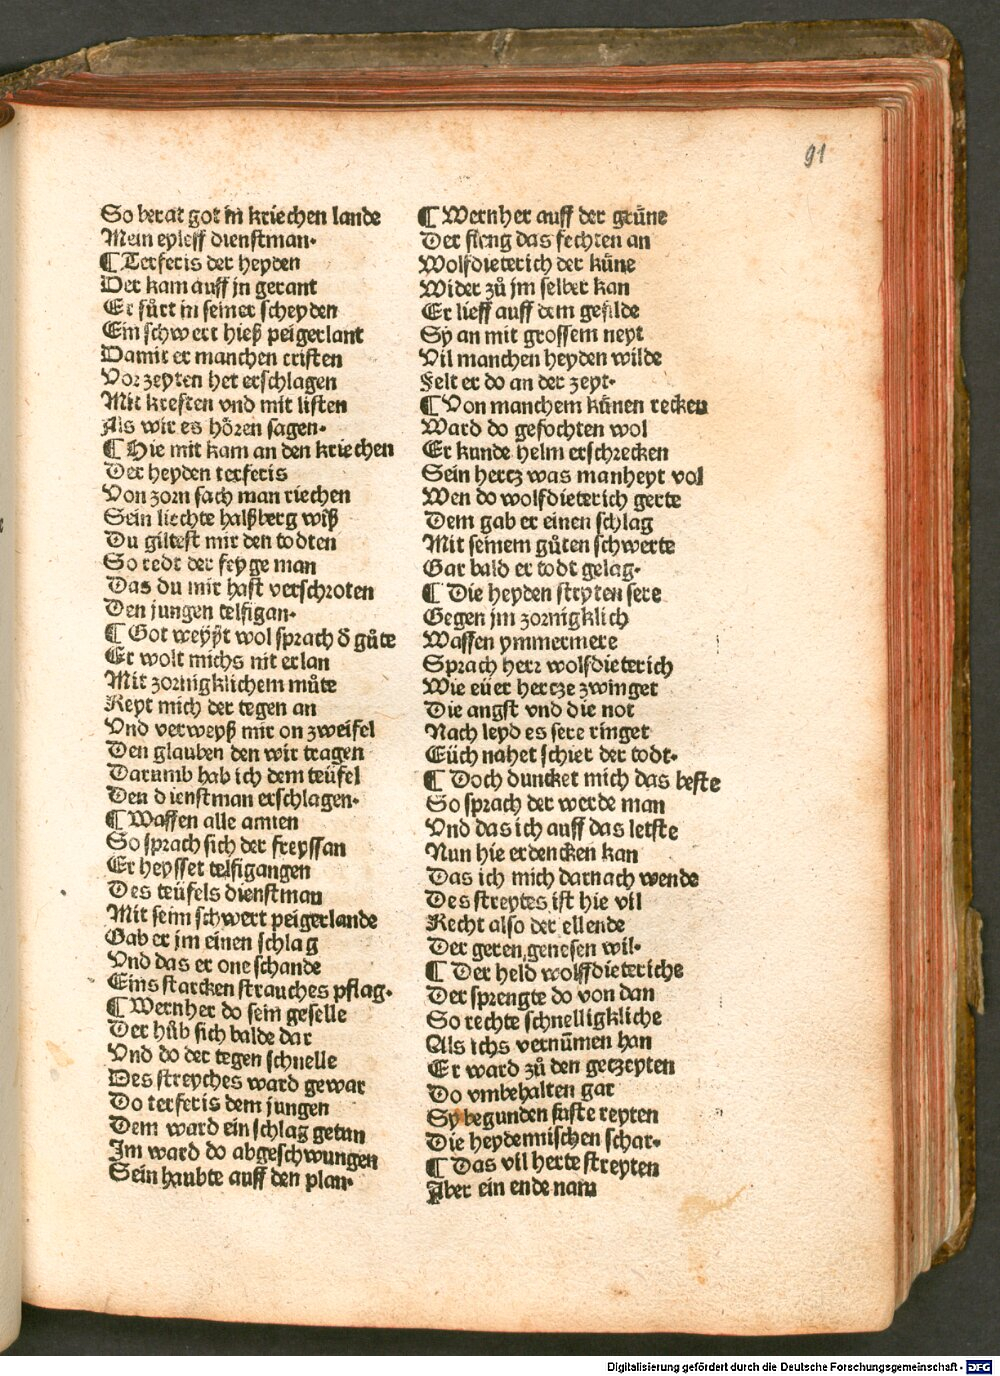 91
So berat got in kriechen lande
Mein eyleff dienstman.
¶ Terferis der heyden
Der kam auff jn gerant
Er fůrt in seiner scheyden
Ein schwert hieß peigerlant
Damit er manchen cristen
Vor zeyten het erschlagen
Mit kreften vnd mit listen
Als wir es hören sagen.
¶ Hie mit kam an den kriechen
Der heyden terferis
Von zorn sach man riechen
Sein liechte halßberg wiß
Du giltest mir den todten
So redt der feyge man
Das du mir hast verschroten
Den jungen telfigan.
¶ Got weyßt wol sprach d̄ gůte
Er wolt michs nit erlan
Mit zornigklichem můte
Reyt mich der tegen an
Vnd verweyß mir on zweifel
Den glauben den wir tragen
Darumb hab ich dem teüfel
Den dienstman erschlagen.
¶ Waffen alle amien
So sprach sich der freyssan
Er heysset telfigangen
Des teüfels dienstman
Mit seim schwert peigerlande
Gab er jm einen schlag
Vnd das er one schande
Eins starcken strauches pflag.
¶ Wernher do sein geselle
Der hůb sich balde dar
Vnd do der tegen schnelle
Des streyches ward gewar
Do terferis dem jungen
Dem ward ein schlag getan
Im ward do abgeschwungen
Sein haubte auff den plan.
¶ Wernher auff der grüne
Der fieng das fechten an
Wolfdieterich der küne
Wider zů jm selber kan
Er lieff auff dem gefilde
Sy an mit grossem neyt
Vil manchen heyden wilde
Felt er do an der zeyt.
¶ Von manchem künen recken
Ward do gefochten wol
Er kunde helm erschrecken
Sein hertz was manheyt vol
Wen do wolfdieterich gerte
Dem gab er einen schlag
Mit seinem gůten schwerte
Gar bald er todt gelag.
¶ Die heyden stryten sere
Gegen jm zornigklich
Waffen ymmermere
Sprach herr wolfdieterich
Wie eüer hertze zwinget
Die angst vnd die not
Nach leyd es sere ringet
Eüch nahet schier der todt.
¶ Doch duncket mich das beste
So sprach der werde man
Vnd das ich auff das letste
Nun hie erdencken kan
Das ich mich darnach wende
Des streytes ist hie vil
Recht also der ellende
Der geren genesen wil.
¶ Der held wolffdieteriche
Der sprengte do von dan
So rechte schnelligkliche
Als ichs vernumen han
Er ward zů den getzeyten
Do vmbehalten gar
Sy begunden faste reyten
Die heydennischen schar.
¶ Das vil herte streyten
Aber ein ende nam
Digitalisierung gefördert durch die Deutsche Forschungsgemeinschaft - DFG